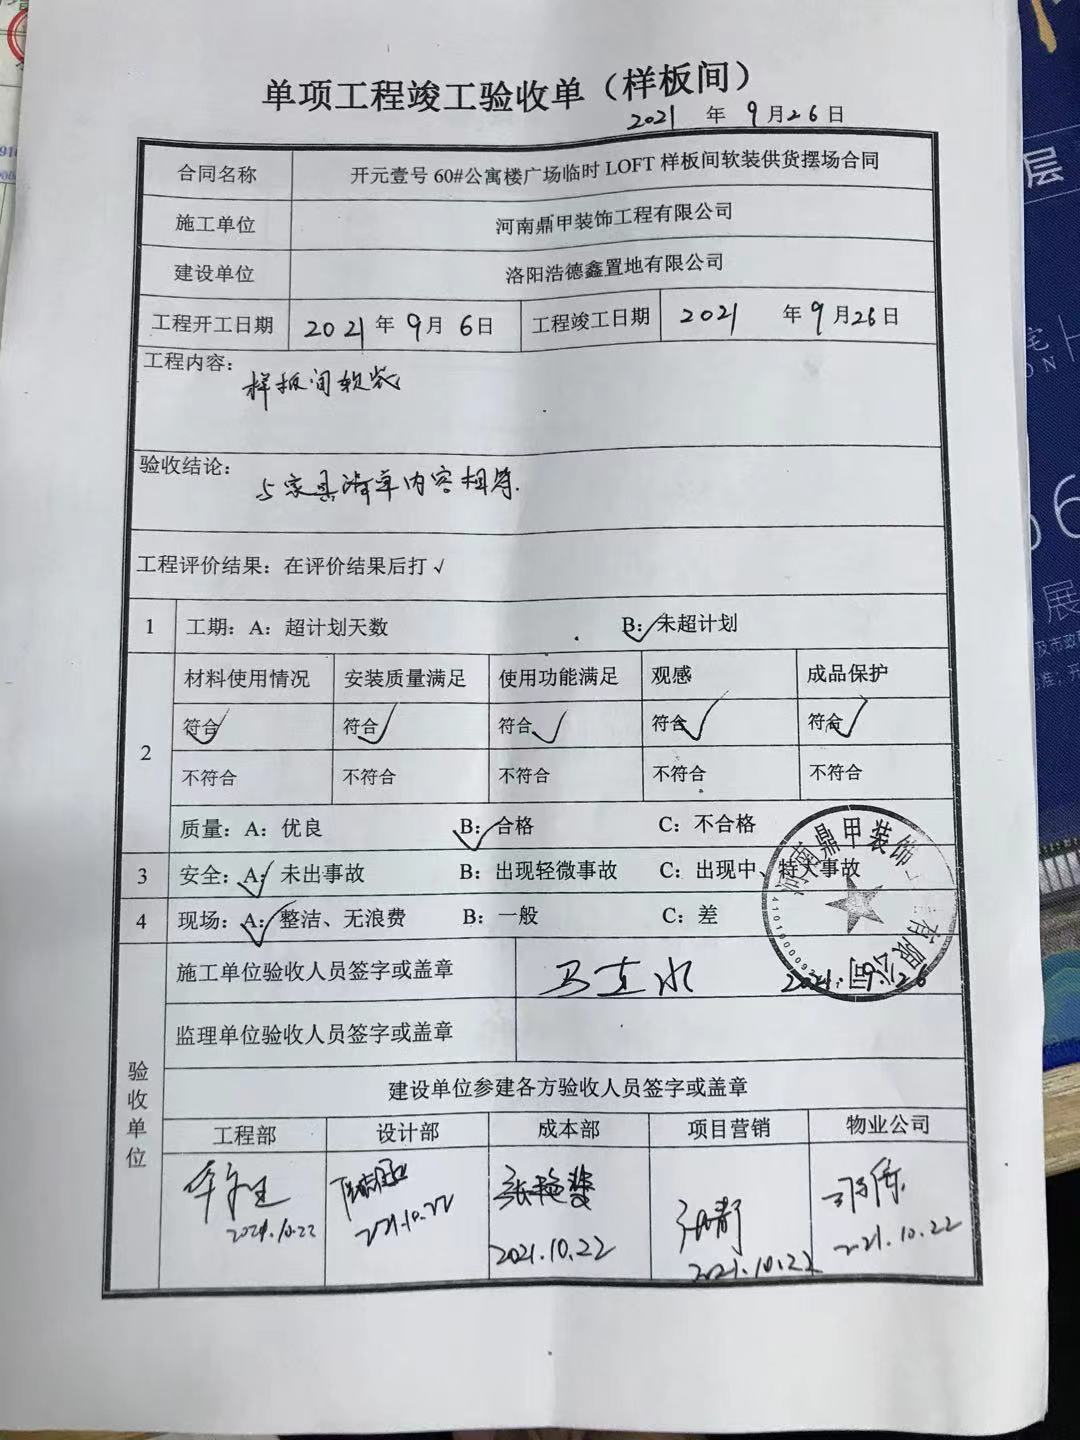 单项工程竣工验收单（样板间）
2021 年 9月26日
合同名称 开元壹号 60#公寓楼广场临时 LOFT 样板间软装供货摆场合同
施工单位 河南鼎甲装饰工程有限公司
建设单位 洛阳浩德鑫置地有限公司
工程开工日期 2021年9月6日 工程竣工日期 2021 年9月26日
工程内容：
样板间软装
验收结论：
与家具清单内容相符.
工程评价结果：在评价结果后打√
1 工期：A：超计划天数 B：✓未超计划
2
材料使用情况 安装质量满足 使用功能满足 观感 成品保护
符合✓ 符合✓ 符合✓ 符合✓ 符合✓
不符合 不符合 不符合 不符合 不符合
质量：A：优良 B：✓合格 C：不合格
3 安全：A：✓未出事故 B：出现轻微事故 C：出现中、特大事故
4 现场：A：✓整洁、无浪费 B：一般 C：差
河南鼎甲装饰 有限公司
验收单位
施工单位验收人员签字或盖章 2021.9.26
监理单位验收人员签字或盖章
建设单位参建各方验收人员签字或盖章
工程部 设计部 成本部 项目营销 物业公司
张艳
2021.10.22 2021.10.22 2021.10.22 2021.10.22 2021.10.22
层
展